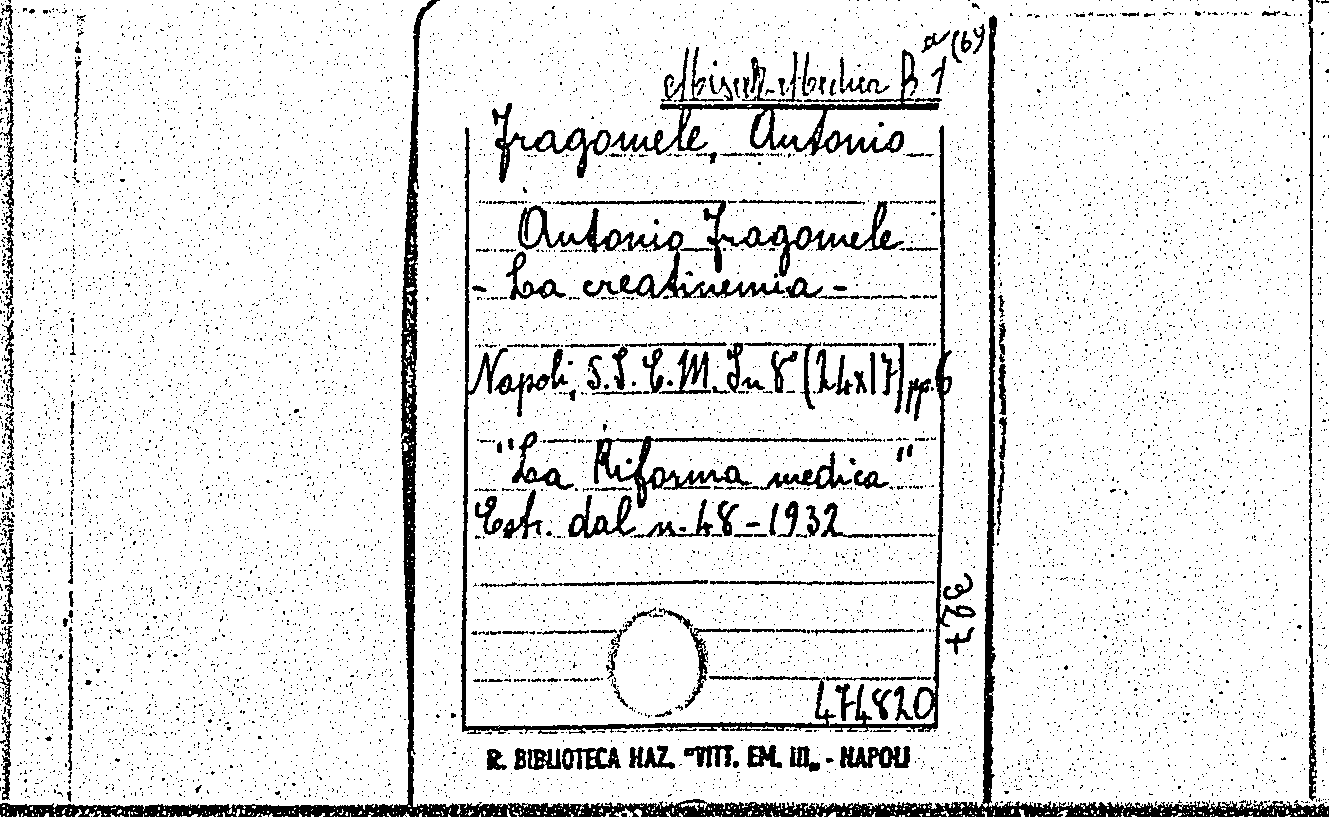 Miscell. Medica B 1 a (64
Fragomele, Antonio
Antonio Fragomele
- La creatinemia -
Napoli, S.I.E.M. In 8° (24x17) pp. 6
"La Riforma medica"
Estr. dal n. 48 - 1932
327
474820
R. BIBLIOTECA NAZ. "VITT. EM. III„ - NAPOLI